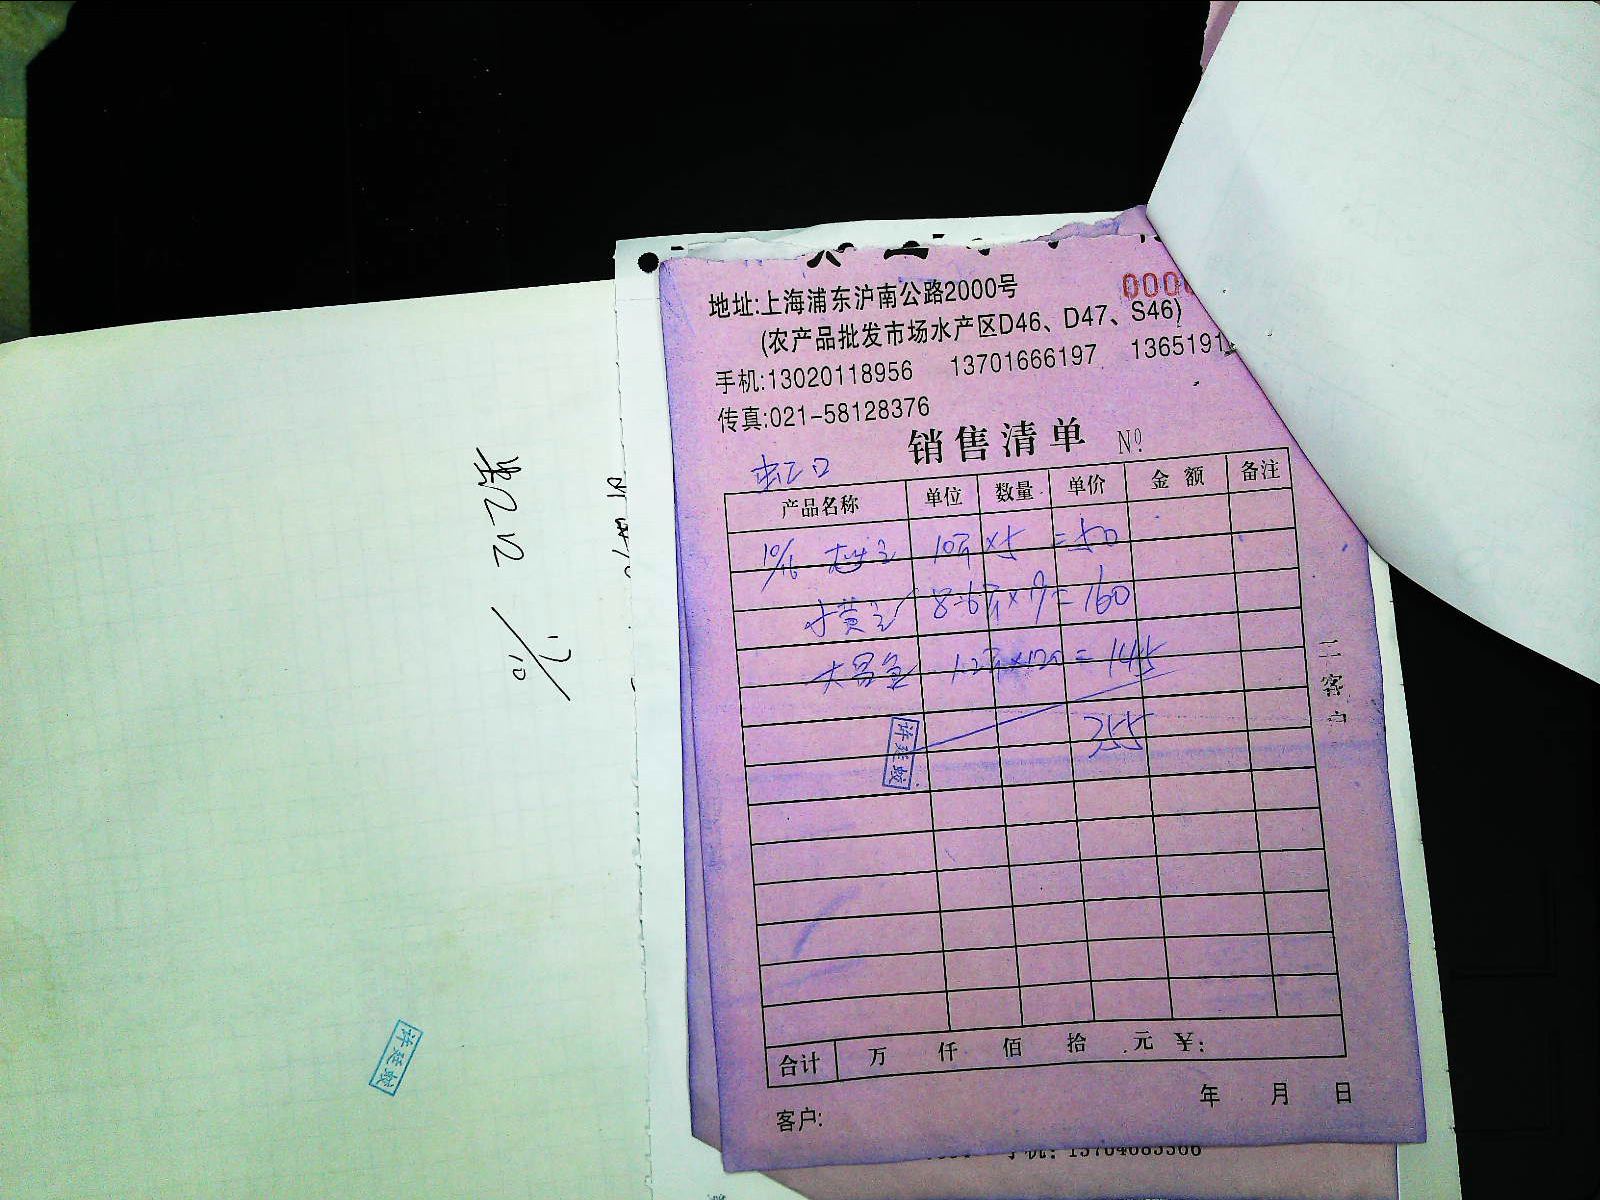 地址:上海浦东沪南公路2000号
0000
(农产品批发市场水产区D46、D47、S46)
手机:13020118956 13701666197 1365191
传真:021-58128376
销售清单 Nº
虹口
产品名称 单位 数量 单价 金额 备注
10/16 10斤×5 =50
小黄鱼 8.6斤×19=160
大昌鱼 1.2斤×120=145
355
二客户
合计 万 仟 佰 拾 元 ¥:
年 月 日
客户:
手机: 13764685566
虹口